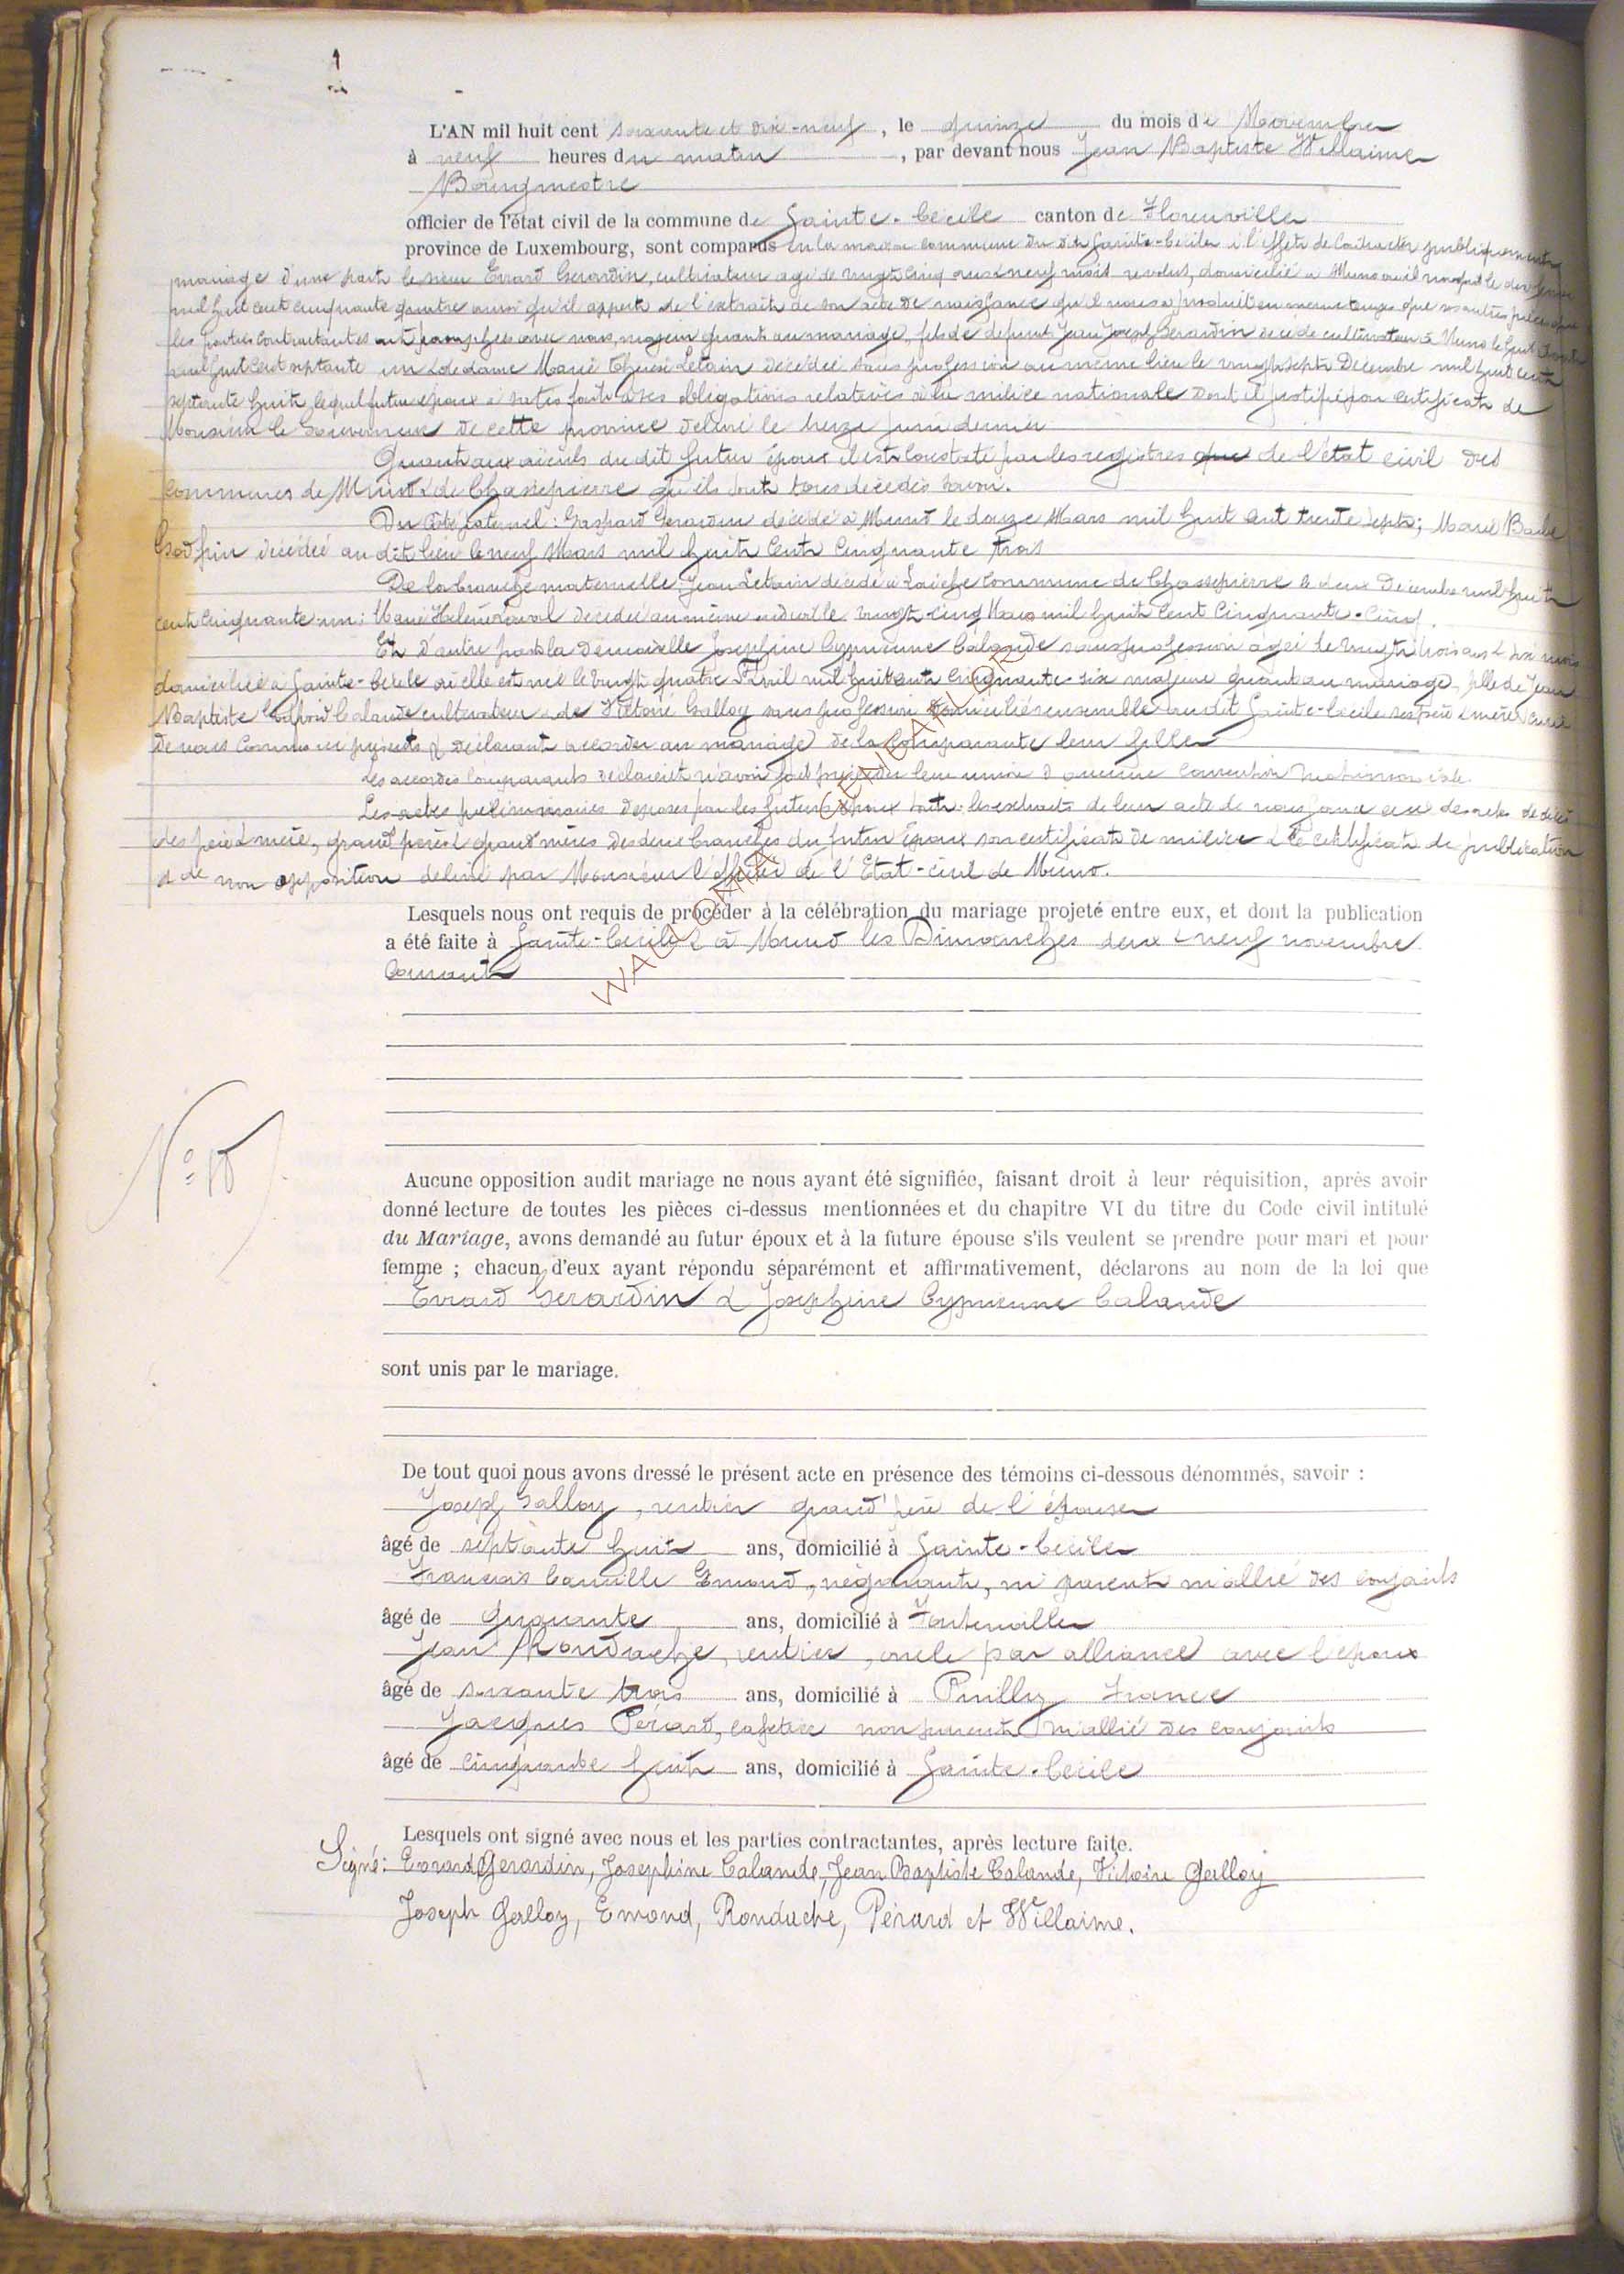 L'AN mil huit cent soixante et dix-neuf, le quinze du mois de Novembre
à neuf heures du matin, par devant nous Jean Baptiste Willaime
Bourgmestre
officier de l'état civil de la commune de Sainte-Cécile canton de Florenville
province de Luxembourg, sont comparus en la maison commune du dit Sainte-Cécile à l'effet de Contracter publiquement
mariage d'une part le sieur Evrard Gerardin, cultivateur agé de vingt cinq ans neuf mois revolus, domicilié à Muno où il naquit le
mil huit cent cinquante quatre ainsi qu'il appert de l'extrait de son acte de naissance qu'il nous a produit en même temps que les autres pièces que
les parties contractantes ont avec nous, majeur quant au mariage, fils de defunt Jean Joseph Gerardin decedé cultivateur à Muno le huit
mil huit cent septante un & de dame Marie Thérèse Letoin décédée sans profession au même lieu le vingt sept Decembre mil huit cent
septante huit, lequel futur époux a satisfait à ses obligations relatives à la milice nationale dont il justifie par certificat de
Monsieur le Gouverneur de cette province délivré le treize juin dernier
Quant aux aieuls du dit futur époux il est constaté par les registres que de l'état civil des
communes de Muno & de Chassepierre qu'ils sont tous decedés savoir.
Du Côté paternel: Gaspard Gerardin decédé à Muno le douze Mars mil huit cent trente sept; Marie Barbe
décédée au dit lieu le neuf Mars mil huit Cent Cinquante trois
De la branche maternelle: Jean Letoin décedé à Laiche Commune de Chassepierre le deux Decembre mil huit
cent cinquante-un; Marie Hélène décedée au même endroit le vingt-cinq Mars mil huit Cent Cinquante-cinq.
Et d'autre part la Demoiselle Josephine Cyprienne Calande sans profession âgée de vingt trois ans & six mois
domiciliée à Sainte-Cécile où elle est née le vingt quatre Avril mil huit cent cinquante-six majeure quant au mariage, fille de Jean
Baptiste Calande cultivateur & de Victoire Galloy sans profession domiciliés ensemble au dit Sainte-Cécile ses père & mère
de nous connus ici présents & déclarant accorder au mariage de la Comparante leur fille
Les accordés Comparants déclarent n'avoir fait précéder leur union d'aucune convention matrimoniale.
Les actes préliminaires déposés par les futurs époux sont: les extraits de leur acte de naissance ceux des actes de décès
des père & mère, grand'pères & grand'mères des deux branches du futur époux son certificat de milice & le certificat de publication
& de non opposition délivré par Monsieur l'officier de l'Etat-civil de Muno.
Lesquels nous ont requis de procéder à la célébration du mariage projeté entre eux, et dont la publication
a été faite à Sainte-Cécile & à Muno les Dimanches deux & neuf novembre
Courant
WALLONIA GENEALOGIE
N° 18
Aucune opposition audit mariage ne nous ayant été signifiée, faisant droit à leur réquisition, après avoir
donné lecture de toutes les pièces ci-dessus mentionnées et du chapitre VI du titre du Code civil intitulé
du Mariage, avons demandé au futur époux et à la future épouse s'ils veulent se prendre pour mari et pour
femme ; chacun d'eux ayant répondu séparément et affirmativement, déclarons au nom de la loi que
Evrard Gerardin & Josephine Cyprienne Calande
sont unis par le mariage.
De tout quoi nous avons dressé le présent acte en présence des témoins ci-dessous dénommés, savoir :
Joseph Galloy, rentier grand'père de l'épouse
âgé de septante huit ans, domicilié à Sainte-Cécile
Francois Camille Emond, négociant, ni parent ni allié des conjoints
âgé de quarante ans, domicilié à Fontenaille
Jean Rondache, rentier, oncle par alliance avec l'époux
âgé de soixante trois ans, domicilié à Puilly France
Jacques Pérard, cafetier non parent ni allié des conjoints
âgé de cinquante huit ans, domicilié à Sainte-Cécile
Lesquels ont signé avec nous et les parties contractantes, après lecture faite.
Signé: Evrard Gerardin, Josephine Calande, Jean Baptiste Calande, Victoire Galloy
Joseph Galloy, Emond, Rondache, Pérard et Willaime.